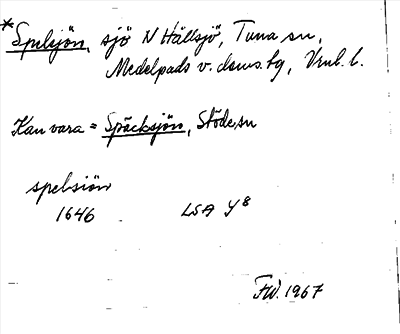 * Spelsjön, sjö N Hällsjö, Tuna sn,
Medelpads v. doms. tg, Vnl. l.
Kan vara = Späcksjön, Stöde sn
spelsiön
1646 LSA Y8
FW. 1967